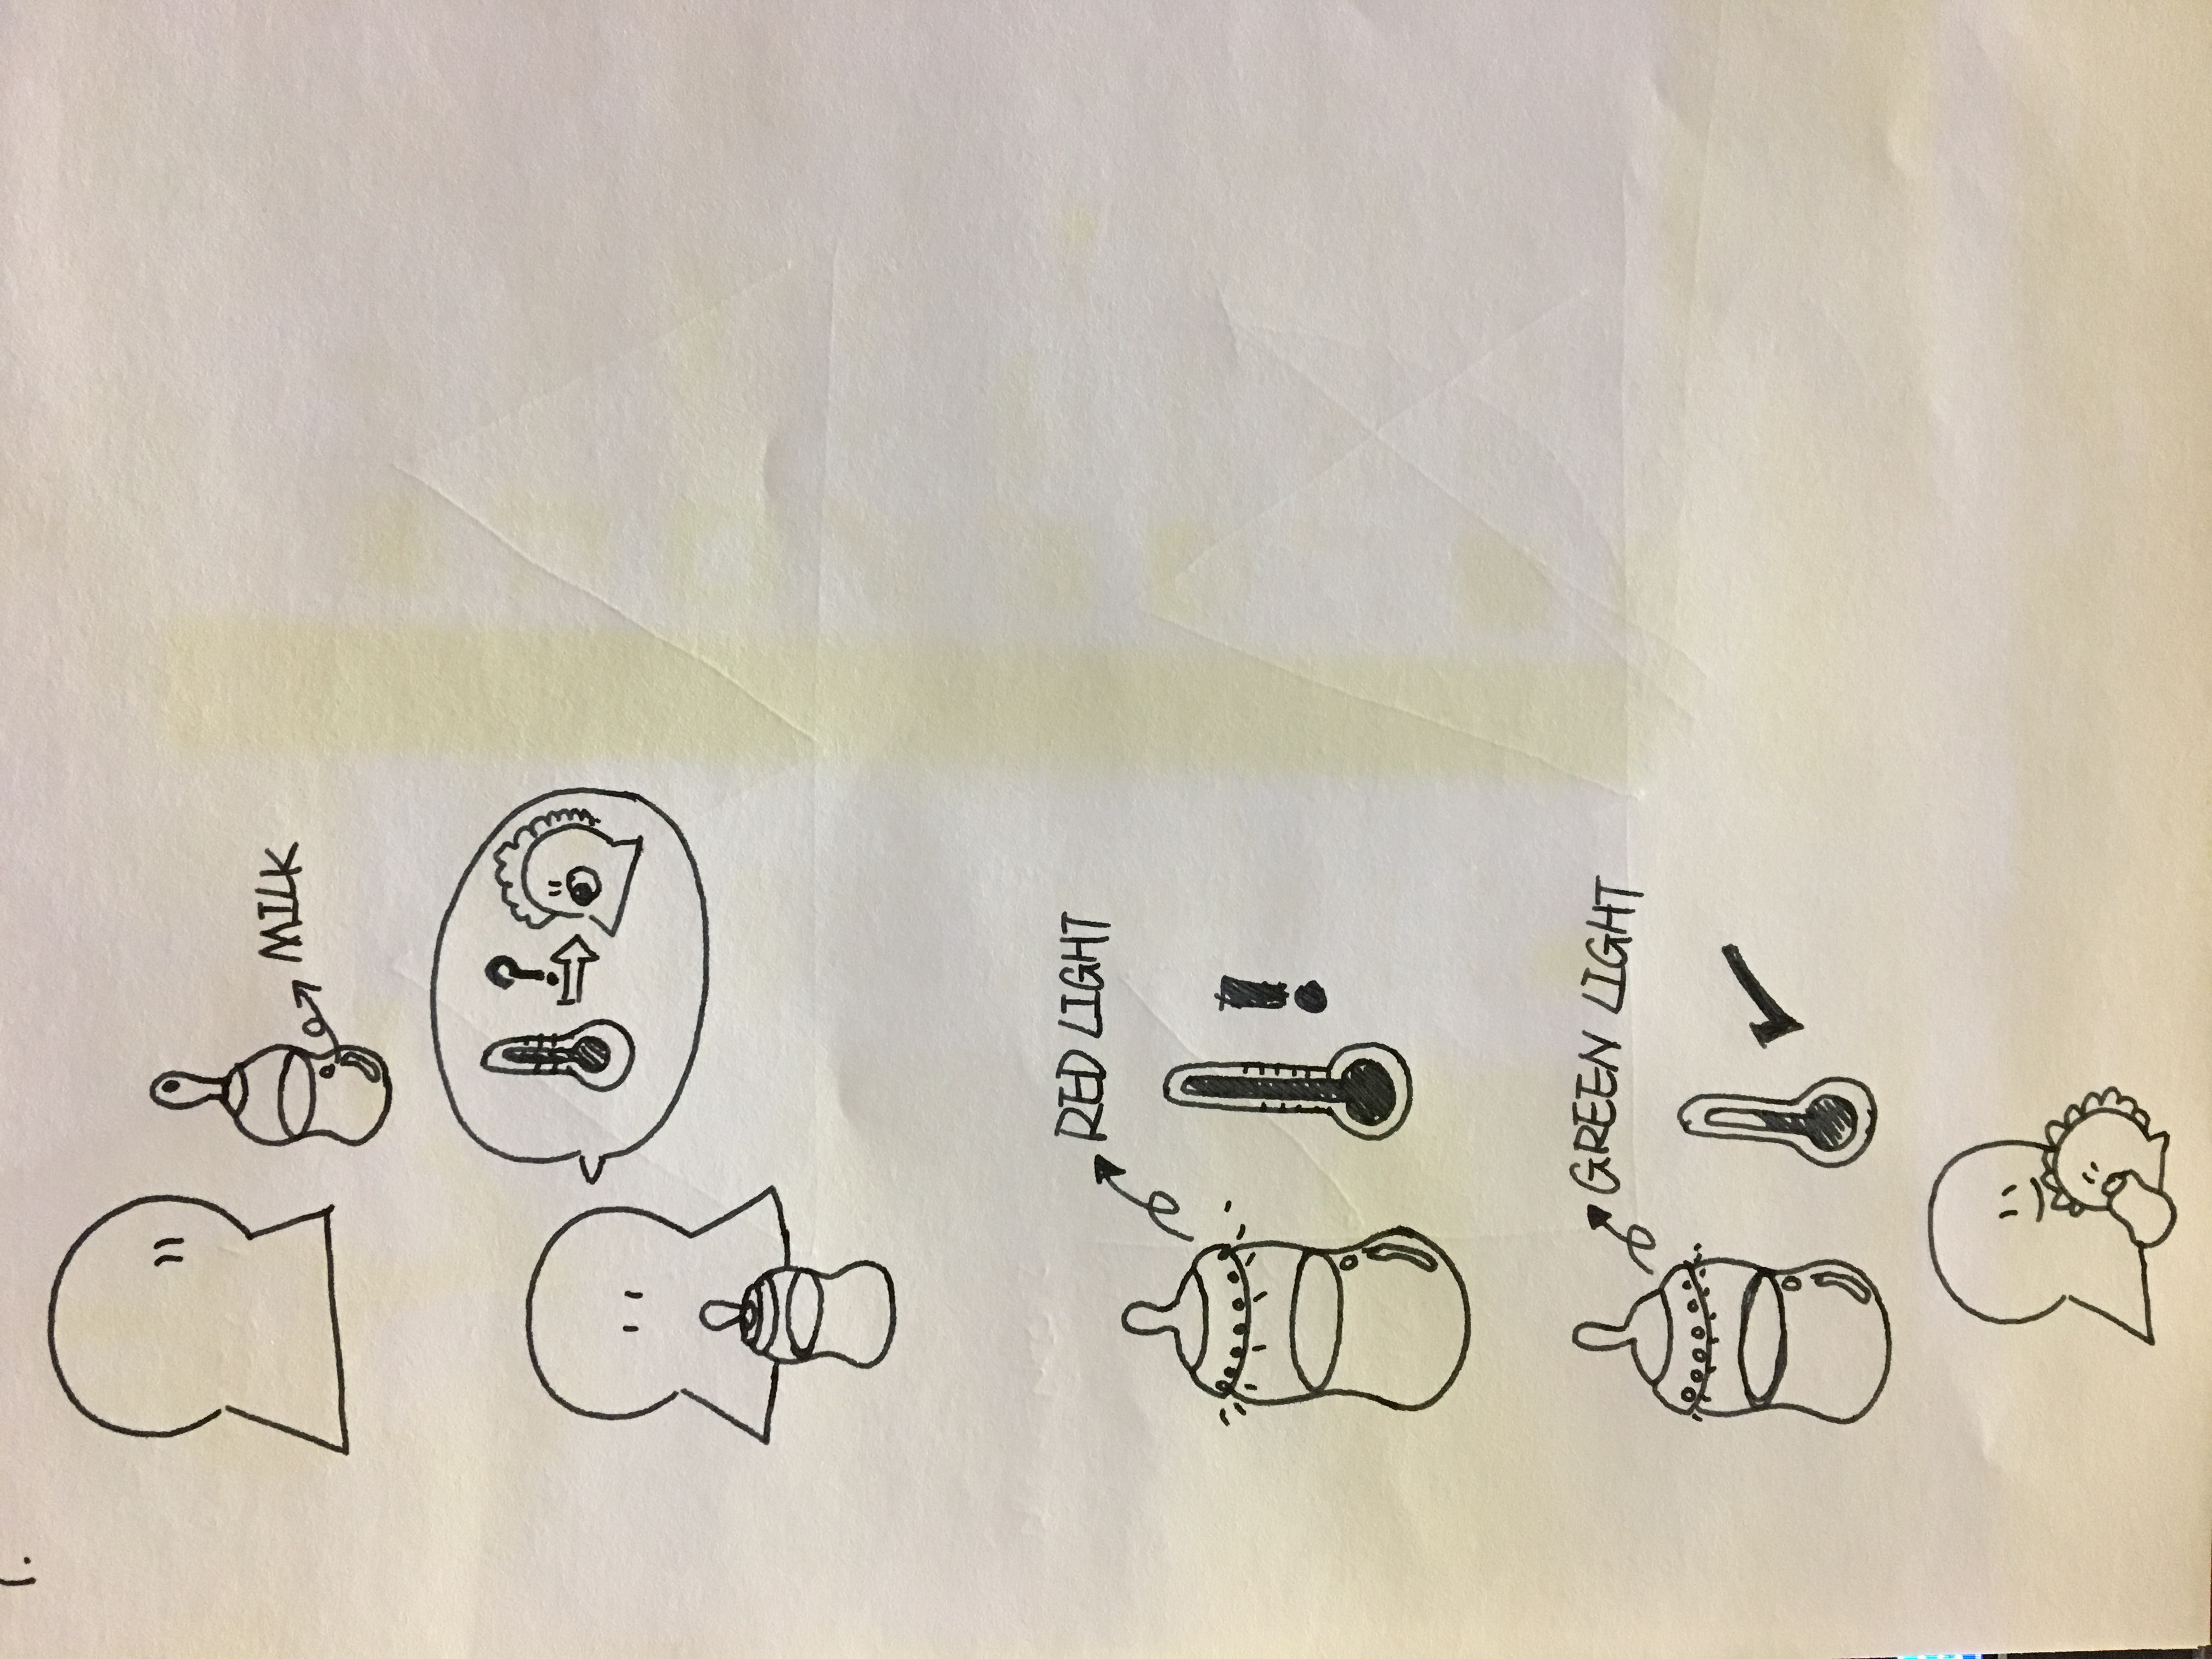 1.
MILK
?
RED LIGHT
!
GREEN LIGHT